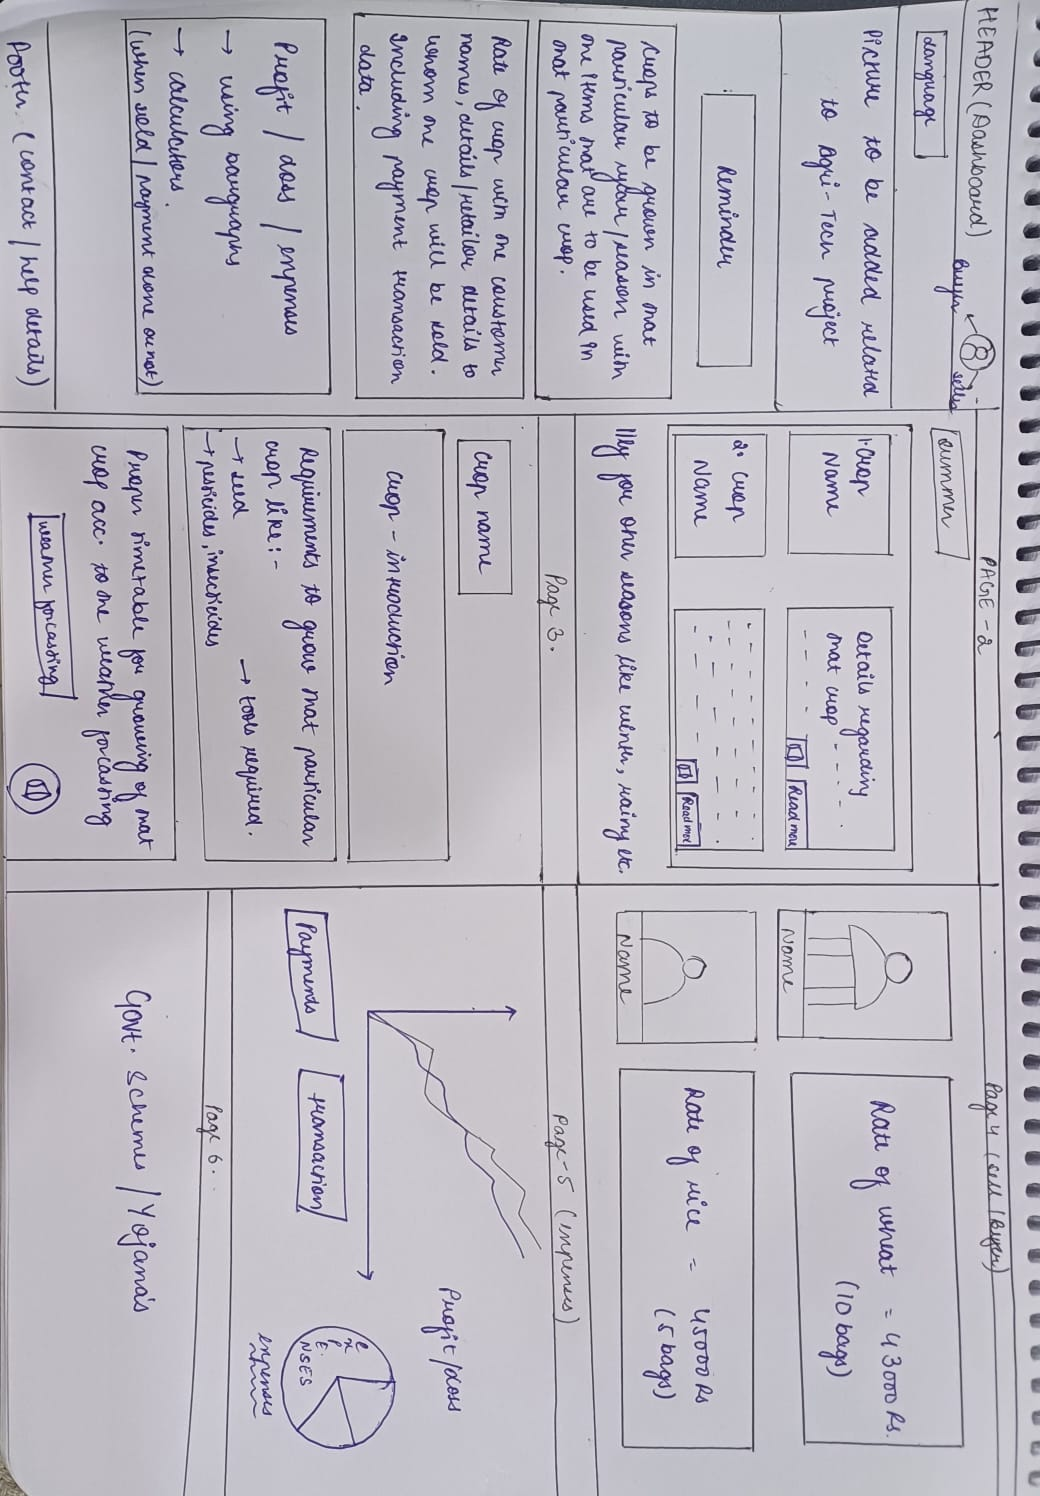 HEADER (Dashboard)
Buyer
seller
language
Picture to be added related
to Agri-Tech project
Reminder
Crops to be grown in that
particular year/season with
the items that are to be used in
that particular crop.
Rate of crop with the coustomer
name, details/retailor details to
whom the crop will be sold.
Including payment transaction
data.
Profit / loss / expenses
→ using bargraphs
→ calculators.
(when sold/payment done or not)
Footer. (contact / help details)
PAGE-2
summer
1. crop
Name
Details regarding
that crop - - - .
Read more
2. crop
Name
Read more
lly for other seasons like winter, rainy etc.
Page 3.
crop name
crop - introduction
Requirements to grow that particular
crop like:-
→ seed
→ tools required.
→ pesticides, insecticides
Proper timetable for growing of that
crop acc. to the weather forcasting
weather forcasting
Page 4 (sell / Buyer)
Name
Rate of wheat = 43000 Rs.
(10 bags)
Name
Rate of rice = 45000 Rs
(5 bags)
Page-5 (expenses)
Profit/loss
Payments
transaction
EXPENSES
expenses
Page 6..
Govt. Schemes / Yojana's